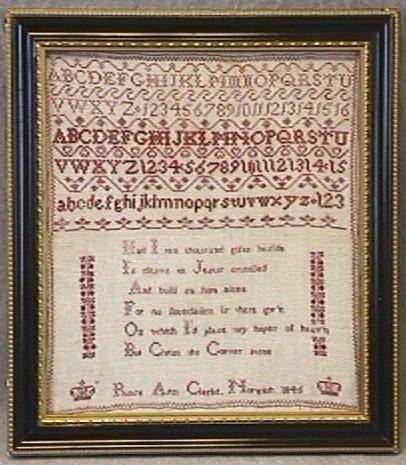 ABCDEFGHIJKLMNOPQRSTU
VWXYZ 12345678910 11 12 13 14 15 16
ABCDEFGHIJKLMNOPQRSTU
VWXYZ 12345678910 11 12 13 14 15
abcdefghijklmnopqrstuvwxyz 123
Had I ten thousand gifts beside
I'd cleave to Jesus crucified
And build on him alone
For no foundation is there giv'n
On which I'd place my hopes of heav'n
But Christ the Corner stone
Ann Clarke Norwich 1845